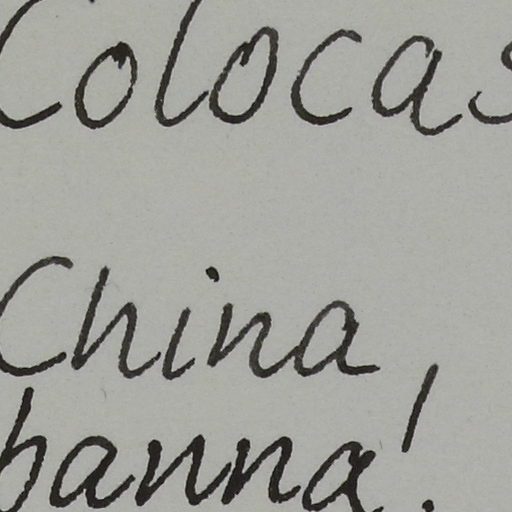 Colocas
China,
banna.